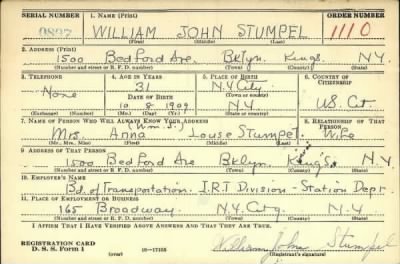 SERIAL NUMBER 1. NAME (Print) ORDER NUMBER
WILLIAM JOHN STUMPEL 1110
(First) (Middle) (Last)
2. ADDRESS (Print)
1500 Bedford Ave. Bklyn. Kings N.Y.
(Number and street or R. F. D. number) (Town) (County) (State)
3. TELEPHONE 4. AGE IN YEARS 5. PLACE OF BIRTH 6. COUNTRY OF CITIZENSHIP
None 31 N.Y City U.S. Cit.
DATE OF BIRTH (Town or county)
10 8 1909 N.Y
(Exchange) (Number) (Mo.) (Day) (Yr.) (State or country)
7. NAME OF PERSON WHO WILL ALWAYS KNOW YOUR ADDRESS 8. RELATIONSHIP OF THAT PERSON
(Wm. J.)
Mrs. Anna Louise Stumpel Wife
(Mr., Mrs., Miss) (First) (Middle) (Last)
9. ADDRESS OF THAT PERSON
1500 Bedford Ave Bklyn. Kings N.Y.
(Number and street or R. F. D. number) (Town) (County) (State)
10. EMPLOYER'S NAME
Bd. of Transportation. I.R.T Division - Station Dept
11. PLACE OF EMPLOYMENT OR BUSINESS
165 Broadway N.Y. City N.Y
(Number and street or R. F. D. number) (Town) (County) (State)
I AFFIRM THAT I HAVE VERIFIED ABOVE ANSWERS AND THAT THEY ARE TRUE.
REGISTRATION CARD
D. S. S. Form 1 (over) William John Stumpel